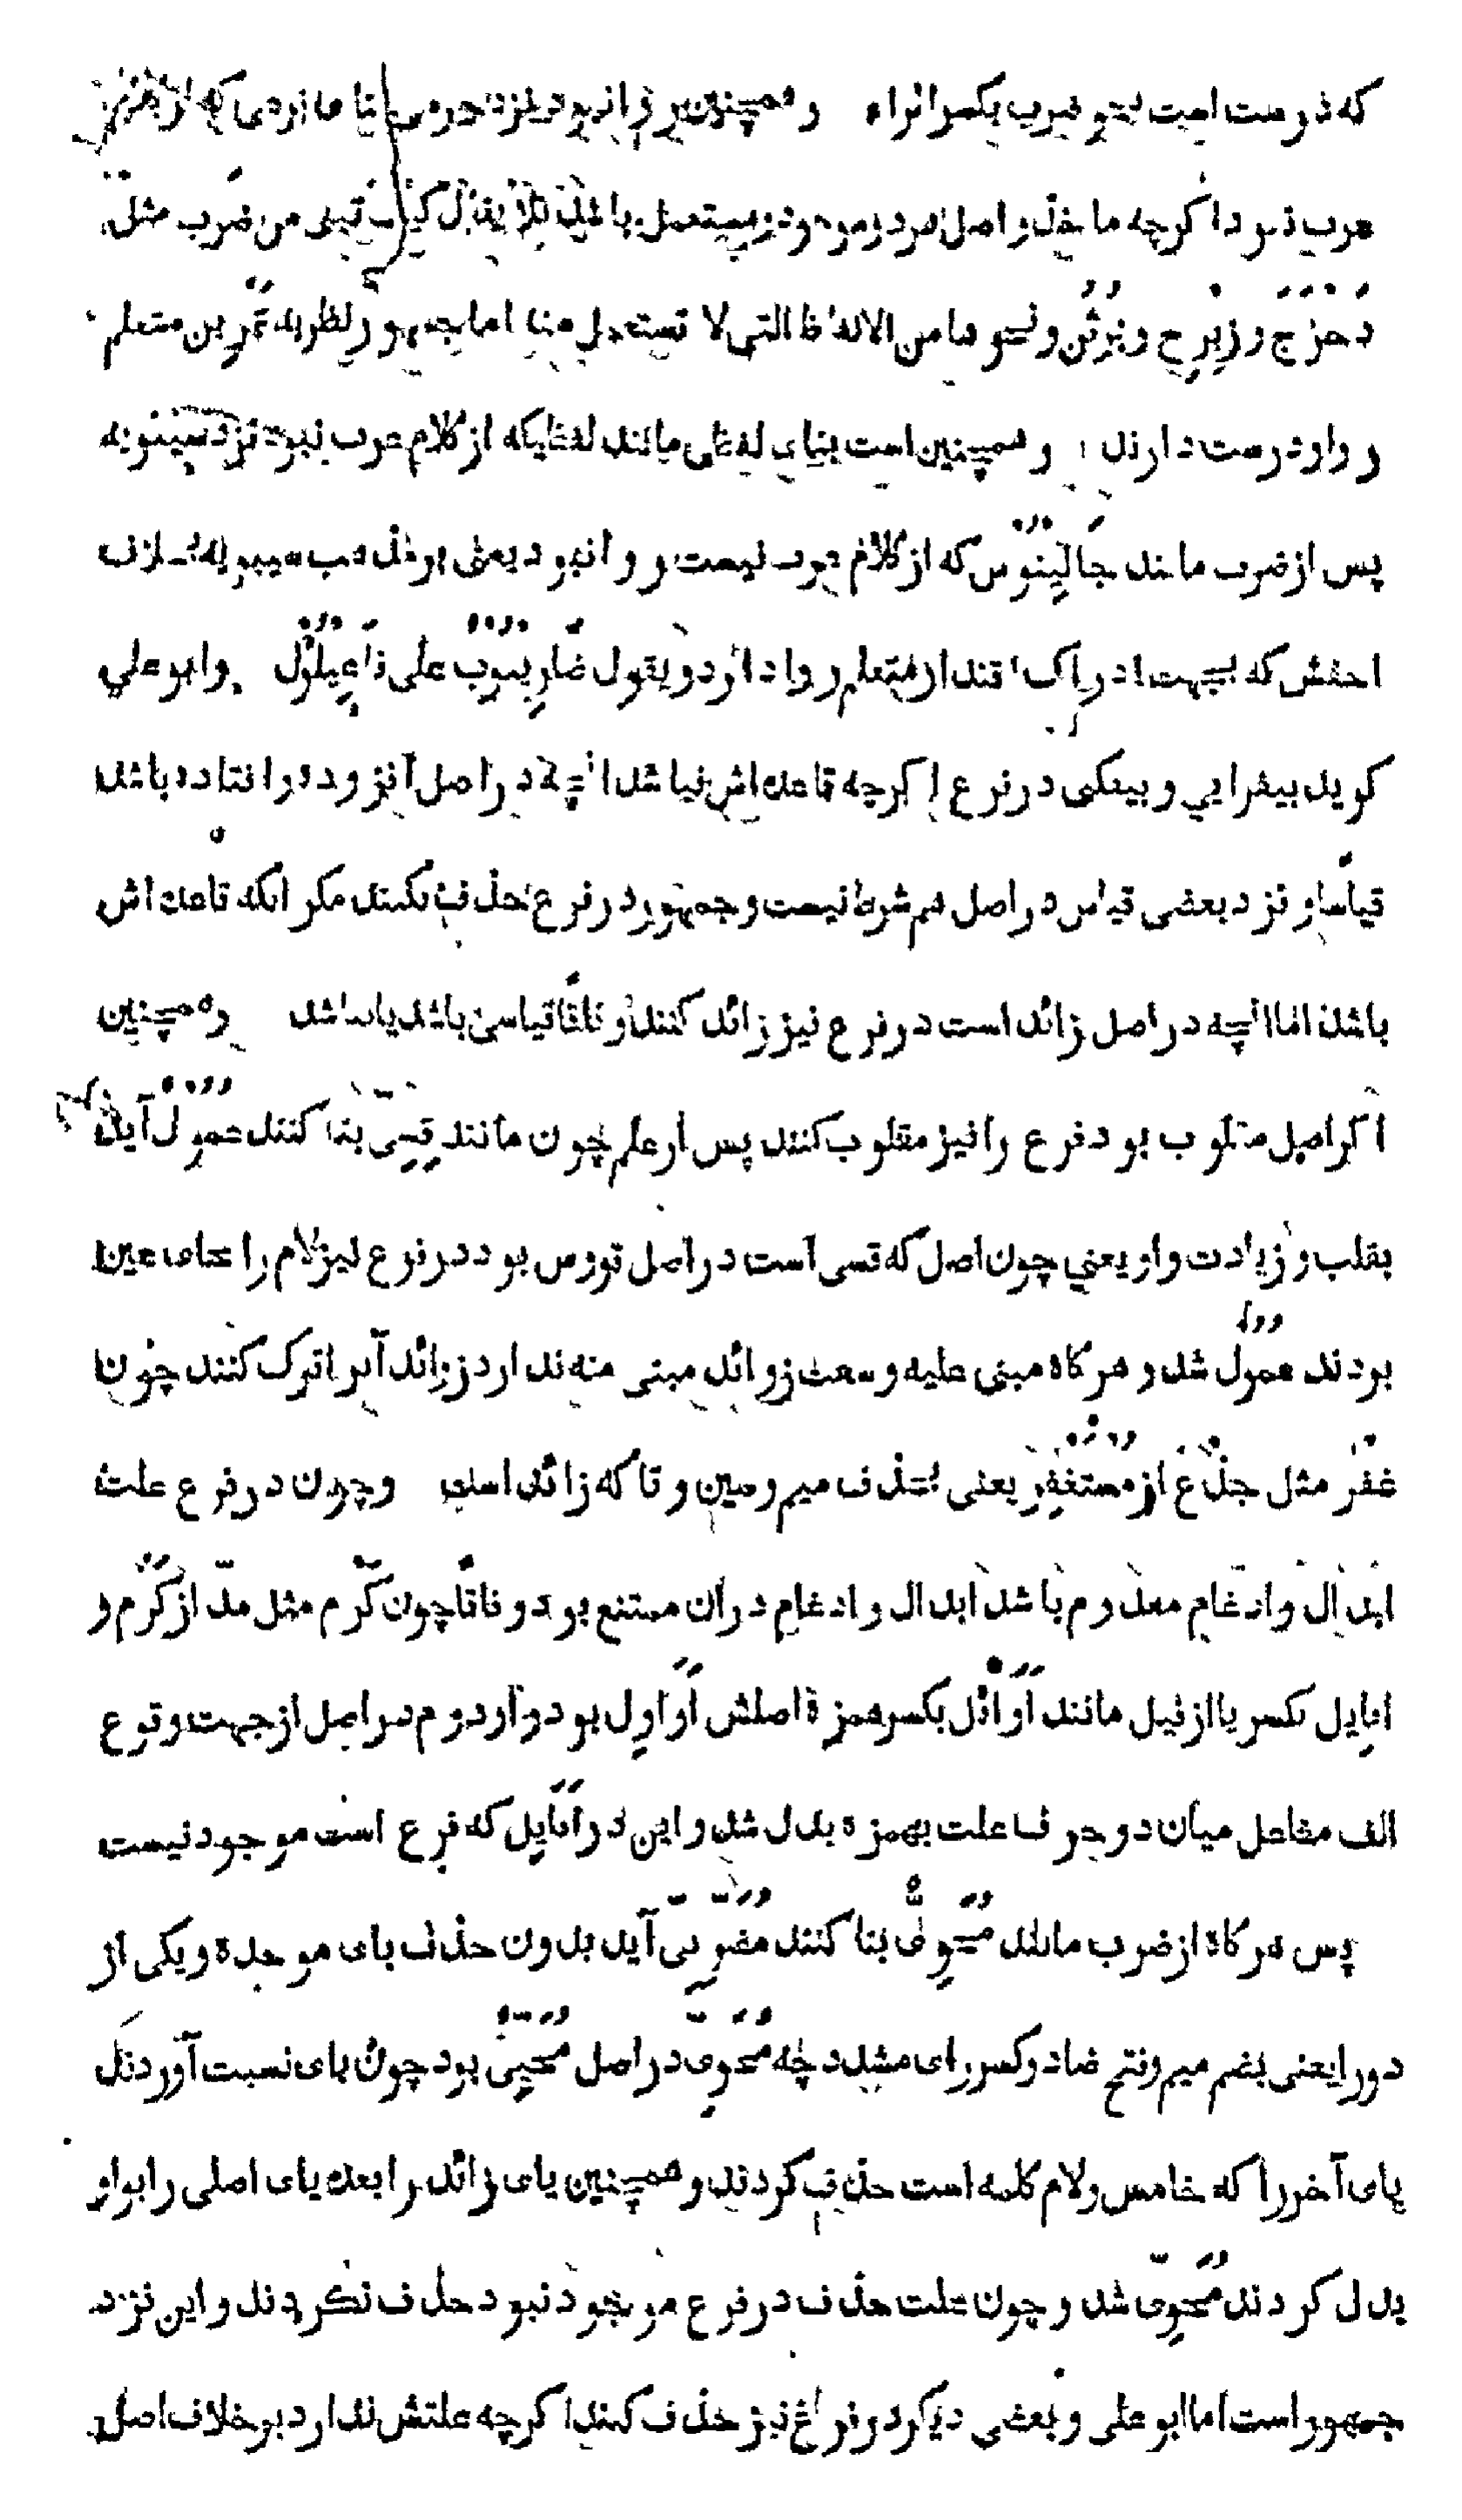 که درست است بنحو ضرب بکسر الراء و همچنین روا نبود نزد جرمی بنا مانندی که از
عرب نبود اگرچه ماخذ و اصل هر دو موجود و مستعمل باشد فلا یقال کیف تبنی من ضرب مثل
دحرج و زبرج و برثن و نحوها من الالفاظ التی لا تستعمل منها اما جمهور نظر به تمرین متعلم
روا و درست دارند و همچنین است بنای لفظی مانند لفظیکه از کلام عرب نبود نزد سیبویه
پس از ضرب مانند جالینوس که از کلام عرب نیست روا نبود یعنی بر مذهب سیبویه بخلاف
اخفش که بجهت ادراک متعلم روا دارد و یقول ضاریبوب علی فاعیلول و ابو علی
کوید بیفزایی و بیفکنی در فرع اگرچه قاعده اش نباشد انچه در اصل افزوده و افتاده باشد
قیاسا و نزد بعضی قیاس در اصل هم شرط نیست و جمهور در فرع حذف نکنند مکر انکه قاعده اش
باشد اما انچه در اصل زائد است در فرع نیز زائد کنند وفاقا قیاسی باشد یا نباشد و همچنین
اکر اصل مقلوب بود فرع را نیز مقلوب کنند پس از علم چون مانند قسی بنا کنند عمول آید
بقلب و زیادت واو یعنی چون اصل که قسی است در اصل قووس بود در فرع نیز لام را بجای عین
بردند عمول شد و هر کاه مبنی علیه وسعت زوائد مبنی منه ندارد زوائد آنرا ترک کنند چون
غفر مثل جذع از مستغفر یعنی بحذف میم و سین و تا که زائد است و چون در فرع علت
ابدال و ادغام معدوم باشد ابدال و ادغام در ان ممتنع بود وفاقا چون کرم مثل مد از کرم و
ابایل بکسر یا از نیل مانند اوائل بکسر همزة اصلش اواول بود واو دوم در اصل از جهت وقوع
الف مفاعل میان دو حرف علت بهمزه بدل شد و این در ابایل که فرع است موجود نیست
پس هر کاه از ضرب مانند محوی بنا کنند مضربی آید بدون حذف بای موحدة و یکی از
دو را یعنی بضم میم و فتح ضاد و کسر رای مشدد چه محوی در اصل محیی بود چون یای نسبت آوردند
یای آخر را که خامس و لام کلمه است حذف کردند و همچنین یای زائد را بعده یای اصلی را بواو
بدل کردند محوی شد و چون علت حذف در فرع موجود نبود حذف نکردند و این نزد
جمهور است اما ابو علی و بعضی دیکر در فرع نیز حذف کنند اکرچه علتش ندارد بر خلاف اصل